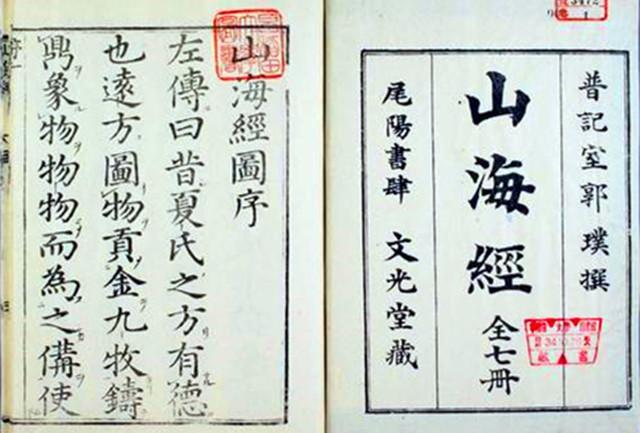 晋記室郭璞撰
山海經
全七冊
尾陽書肆 文光堂藏
山海經圖序
左傳曰昔夏氏之方有德
也遠方圖物貢金九牧鑄
鼎象物物物而為之備使